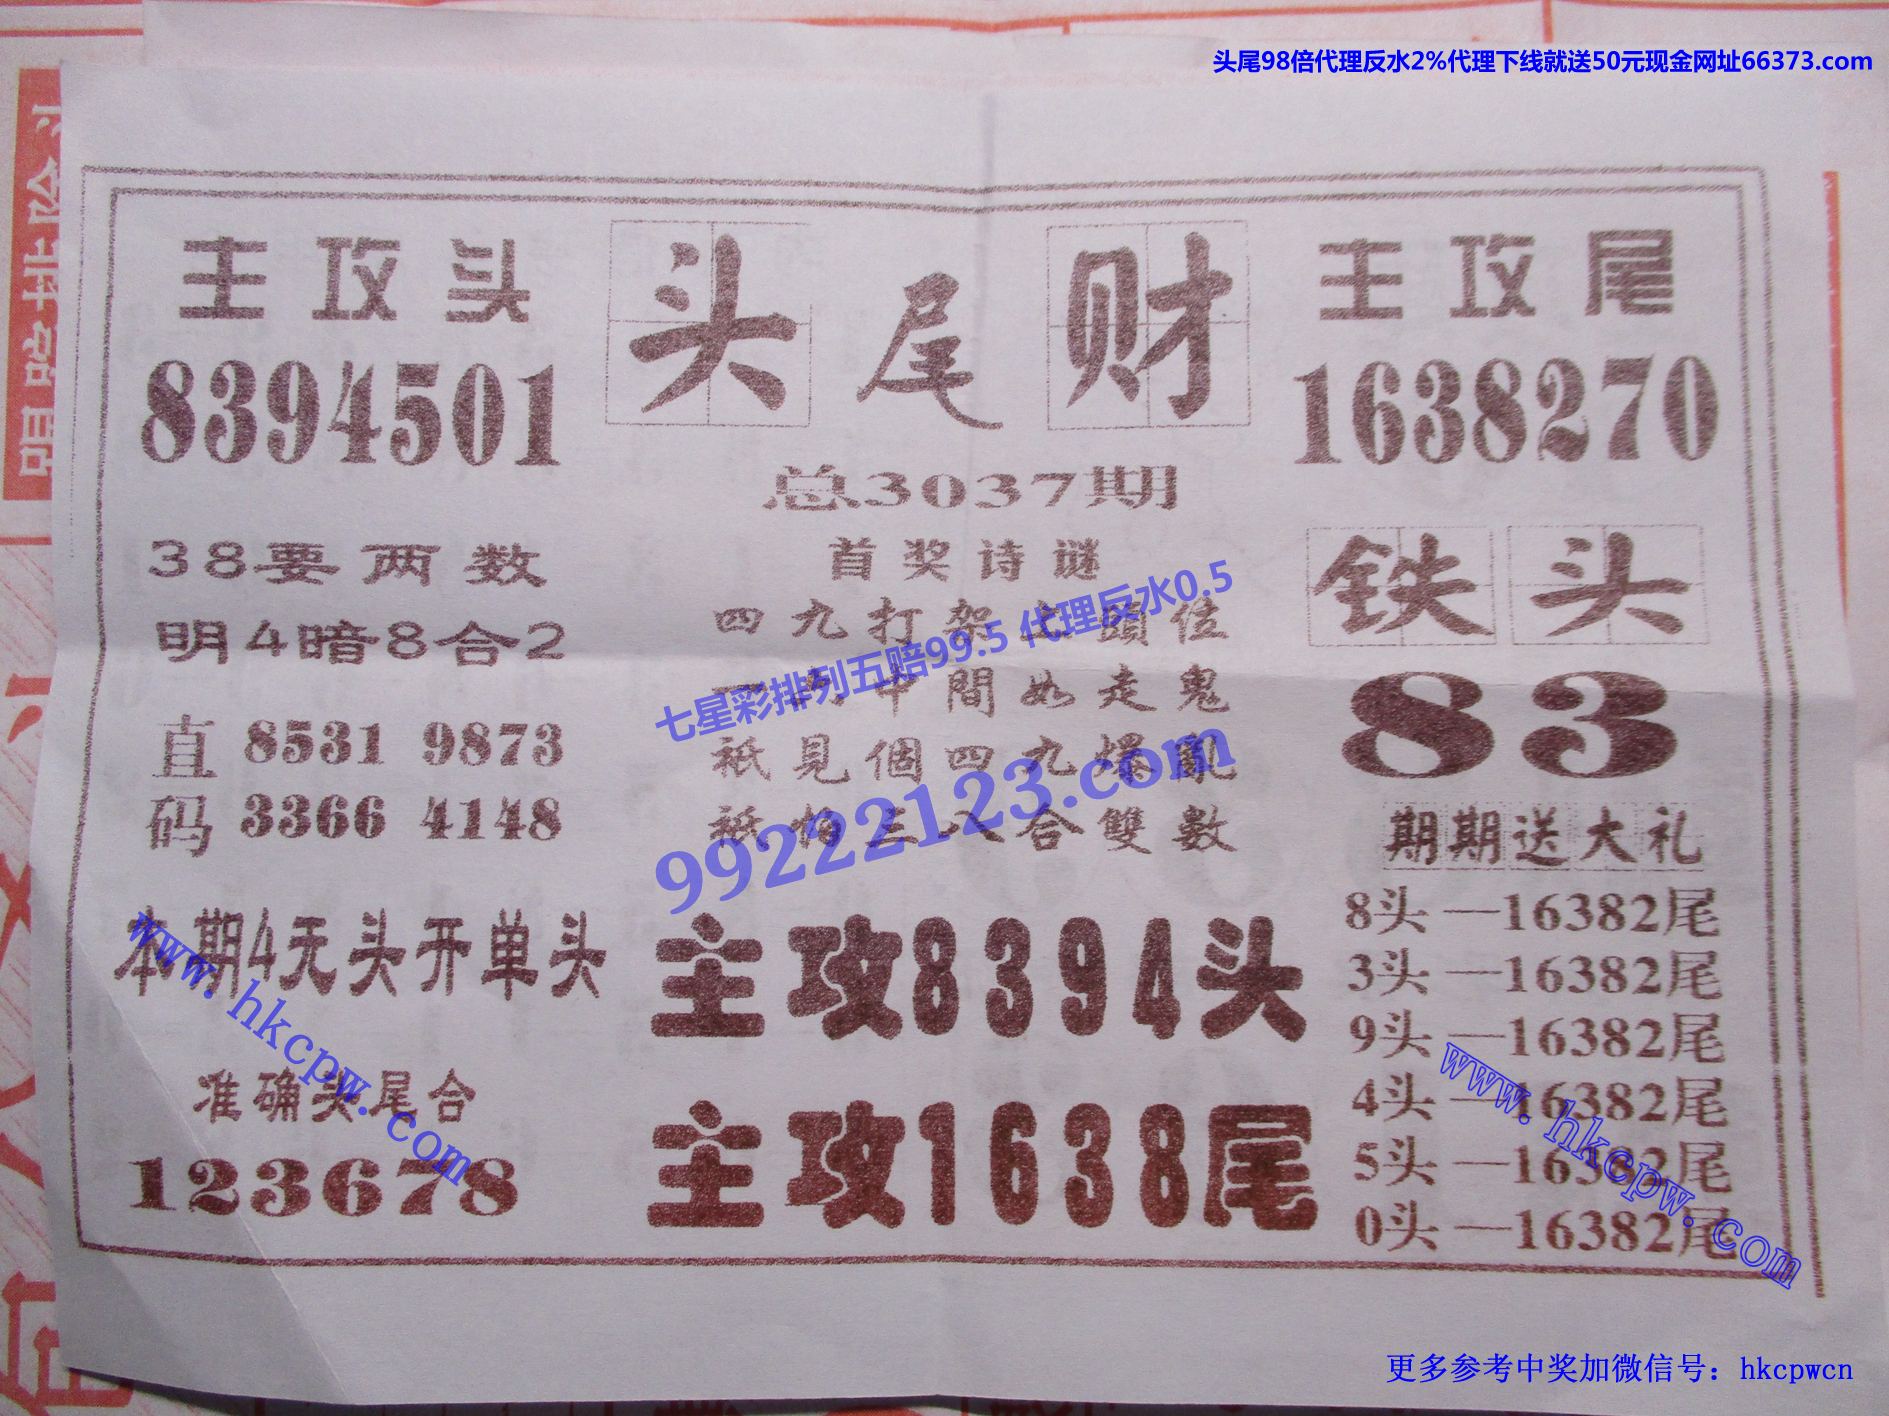 头尾98倍代理反水2%代理下线就送50元现金网址66373.com
主攻头
头尾财
主攻尾
8394501
1638270
总3037期
38要两数
明4暗8合2
首奖诗谜
四九打架 頭位
中間如走鬼
祇見個四九爆亂
祇 三八合雙數
七星彩排列五赔99.5 代理反水0.5
99222123.com
铁头
83
直码
8531 9873
3366 4148
期期送大礼
8头—16382尾
3头—16382尾
9头—16382尾
4头—16382尾
5头—16382尾
0头—16382尾
本期4无头开单头
www.hkcpw.com
主攻8394头
准确头尾合
123678
主攻1638尾
www.hkcpw.com
更多参考中奖加微信号：hkcpwcn